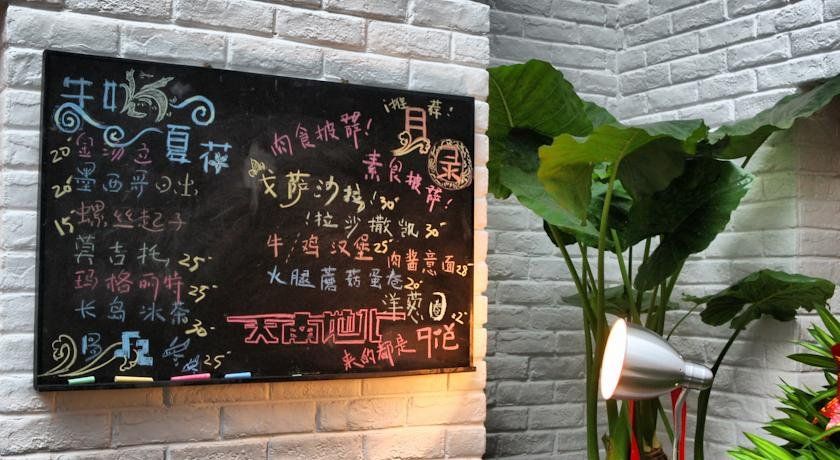 牛奶
夏花
20 金汤力
20 墨西哥日出
15 螺丝起子
莫吉托 25
玛格丽特 25
长岛冰茶 30
25
推荐!
目录
肉食披萨!
素食披萨!
戈萨沙拉! 30
!拉沙撒凯 30
牛/鸡汉堡 25
肉酱意面 28
火腿蘑菇蛋卷 20
洋葱圈 12
天南地北
来的都是